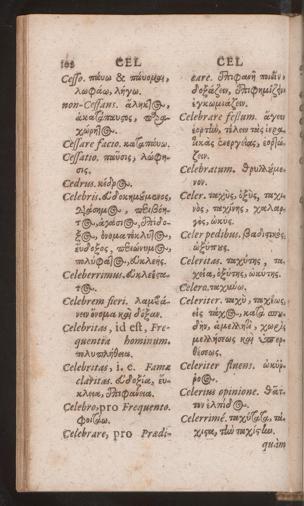 108 CEL CEL
Cesso. παύω & παύομαι,
λωφάω, λήγω.
non-Cessans. ἄληκτος,
ἀκατάπαυστος,
Cessare facio. καταπαύω.
Cessatio. παῦσις, λώφη-
σις.
Cedrus. κέδρος.
Celebris. εὐδοκιμούμενος,
ὀνομα
ἔνδοξος,
εὐκλεής.
Celeberrimus. εὐκλεέστα-
τος.
Celebrem fieri. λαμβά-
νειν ὄνομα καὶ δόξαν.
Celebritas, id est, Fre-
quentia hominum.
πολυπλήθεια.
Celebritas, i. e. Famæ
claritas. εὐδοξία, εὔ-
κλεια, ἐπιφάνεια.
Celebro, pro Frequento.
φοιτάω.
Celebrare, pro Prædi-
care. ἐπιφανῆ ποιεῖν,
δοξάζειν, ἐπιφημίζειν
ἐγκωμιάζειν.
Celebrare festum. ἄγειν
ἑορτὴν, τελεῖν τὰς ἱερα-
τικὰς ἐνεργείας, ἑορτά-
ζειν.
Celebratum. θρυλλούμε-
νον.
Celer. ταχὺς, ὀξὺς, ταχι-
νὸς,
ὠκύς.
Celer pedibus. βαδιστικὸς,
ὀξύπους.
Celeritas. ταχύτης, τα-
χεῖα, ὀξύτης, ὠκύτης.
Celero. ταχύνω.
Celeriter. ταχὺ, ταχέως,
εἰς τάχος, κατὰ σπου-
δὴν, ἀμελλητὶ, χωρὶς
μελλήσεως καὶ ὑπερ-
θέσεως.
Celeriter fluens. ὠκύρ-
ροος.
Celerius opinione. θᾶτ-
τον ἐλπίδος.
Celerrimè. ταχύτατα, τά-
χιστα, τὴν ταχίστην.
quàm